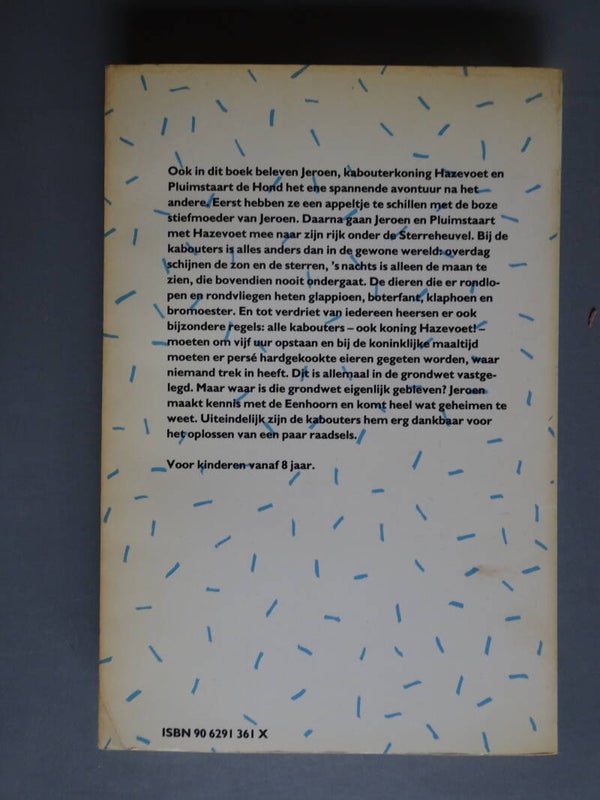 Ook in dit boek beleven Jeroen, kabouterkoning Hazevoet en
Pluimstaart de Hond het ene spannende avontuur na het
andere. Eerst hebben ze een appeltje te schillen met de boze
stiefmoeder van Jeroen. Daarna gaan Jeroen en Pluimstaart
met Hazevoet mee naar zijn rijk onder de Sterreheuvel. Bij de
kabouters is alles anders dan in de gewone wereld: overdag
schijnen de zon en de sterren, 's nachts is alleen de maan te
zien, die bovendien nooit ondergaat. De dieren die er rondlo-
pen en rondvliegen heten glappioen, boterfant, klaphoen en
bromoester. En tot verdriet van iedereen heersen er ook
bijzondere regels: alle kabouters – ook koning Hazevoet! –
moeten om vijf uur opstaan en bij de koninklijke maaltijd
moeten er persé hardgekookte eieren gegeten worden, waar
niemand trek in heeft. Dit is allemaal in de grondwet vastge-
legd. Maar waar is die grondwet eigenlijk gebleven? Jeroen
maakt kennis met de Eenhoorn en komt heel wat geheimen te
weet. Uiteindelijk zijn de kabouters hem erg dankbaar voor
het oplossen van een paar raadsels.
Voor kinderen vanaf 8 jaar.
ISBN 90 6291 361 X